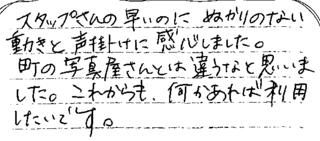 スタッフさんの早いのに ぬかりのない
動きと声掛けに感心しました。
町の写真屋さんとは違うなと思いま
した。これからも、何かあれば利用
したいです。